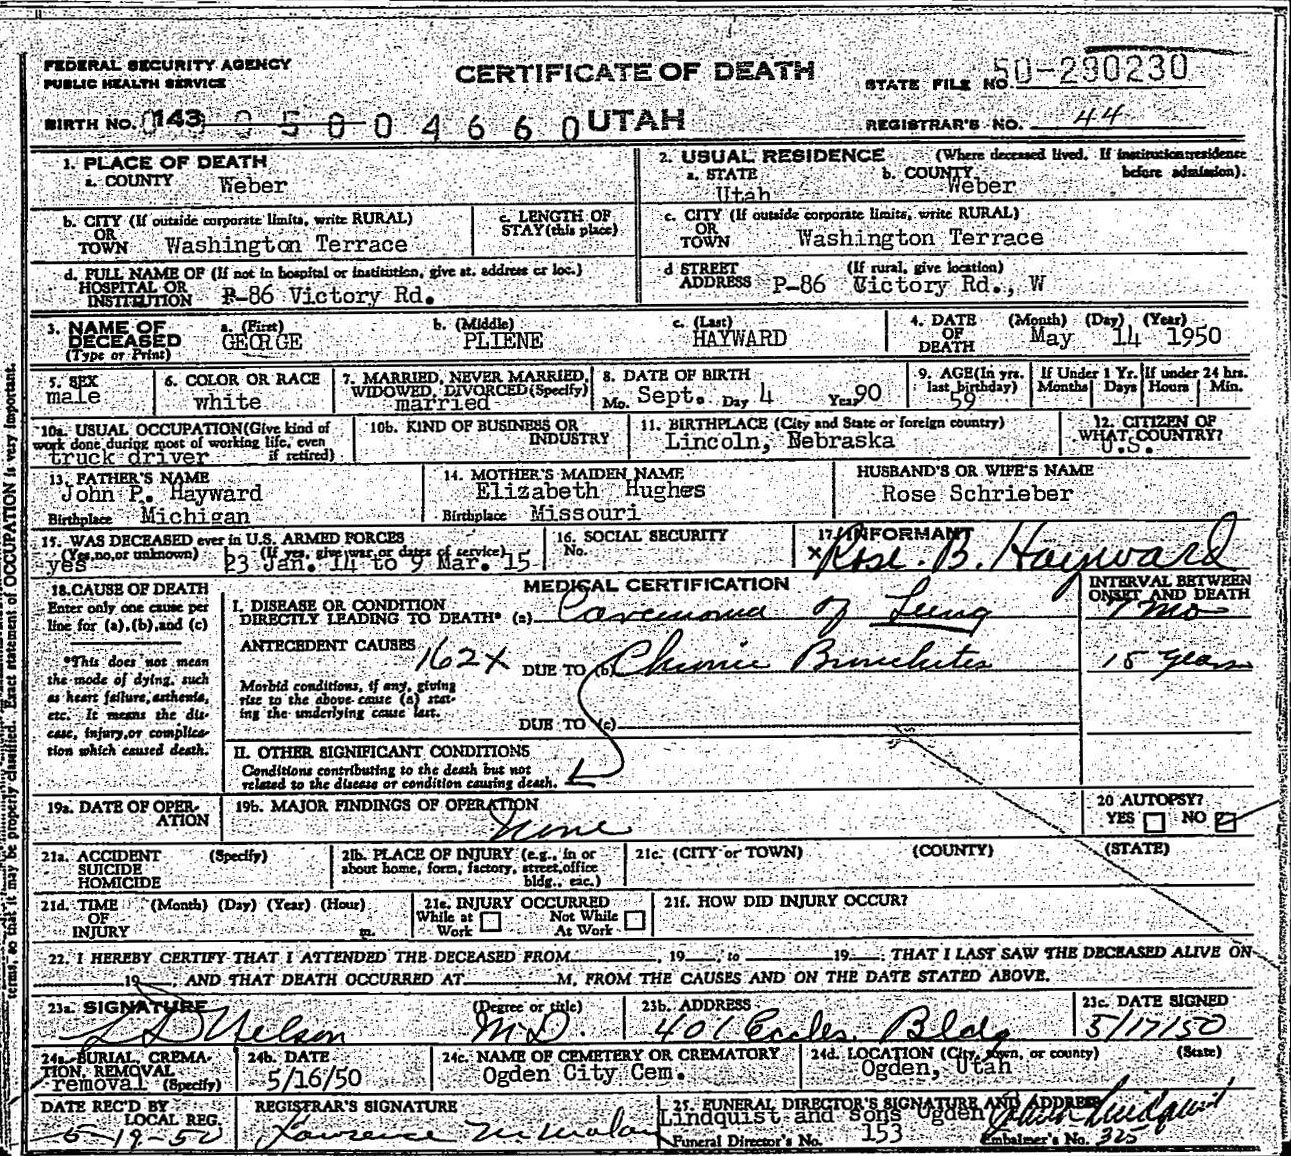 FEDERAL SECURITY AGENCY
PUBLIC HEALTH SERVICE
CERTIFICATE OF DEATH
STATE FILE NO. 50-290230
BIRTH NO. 143 UTAH
REGISTRAR'S NO. 44
1. PLACE OF DEATH
a. COUNTY Weber
2. USUAL RESIDENCE (Where deceased lived. If institution:residence before admission).
a. STATE Utah b. COUNTY Weber
b. CITY (If outside corporate limits, write RURAL)
OR TOWN Washington Terrace
c. LENGTH OF STAY (this place)
c. CITY (If outside corporate limits, write RURAL)
OR TOWN Washington Terrace
d. FULL NAME OF (If not in hospital or institution, give st. address or loc.)
HOSPITAL OR INSTITUTION P-86 Victory Rd.
d STREET ADDRESS (If rural, give location)
P-86 Victory Rd., W
3. NAME OF DECEASED (Type or Print)
a. (First) GEORGE
b. (Middle) PLIENE
c. (Last) HAYWARD
4. DATE OF DEATH (Month) (Day) (Year)
May 14 1950
5. SEX male
6. COLOR OR RACE white
7. MARRIED, NEVER MARRIED, WIDOWED, DIVORCED (Specify) married
8. DATE OF BIRTH
Mo. Sept. Day 4 Year 90
9. AGE (In yrs. last birthday) 59
If Under 1 Yr. Months Days
If under 24 hrs. Hours Min.
10a. USUAL OCCUPATION (Give kind of work done during most of working life, even if retired)
truck driver
10b. KIND OF BUSINESS OR INDUSTRY
11. BIRTHPLACE (City and State or foreign country)
Lincoln, Nebraska
12. CITIZEN OF WHAT COUNTRY?
U.S.
13. FATHER'S NAME
John P. Hayward
Birthplace Michigan
14. MOTHER'S MAIDEN NAME
Elizabeth Hughes
Birthplace Missouri
HUSBAND'S OR WIFE'S NAME
Rose Schrieber
15. WAS DECEASED ever in U.S. ARMED FORCES
(Yes, no, or unknown) (If yes, give war or dates of service)
yes 23 Jan. 14 to 9 Mar. 15
16. SOCIAL SECURITY No.
17. INFORMANT
x Rose B. Hayward
18. CAUSE OF DEATH
Enter only one cause per line for (a), (b), and (c)
*This does not mean the mode of dying, such as heart failure, asthenia, etc. It means the disease, injury, or complication which caused death.
MEDICAL CERTIFICATION
INTERVAL BETWEEN ONSET AND DEATH
I. DISEASE OR CONDITION DIRECTLY LEADING TO DEATH* (a) Carcinoma of Lung 7 mo
ANTECEDENT CAUSES 162X
DUE TO (b) Chronic Bronchitis 15 years
Morbid conditions, if any, giving rise to the above cause (a) stating the underlying cause last.
DUE TO (c)
II. OTHER SIGNIFICANT CONDITIONS
Conditions contributing to the death but not related to the disease or condition causing death.
19a. DATE OF OPERATION
19b. MAJOR FINDINGS OF OPERATION
None
20 AUTOPSY?
YES NO
21a. ACCIDENT SUICIDE HOMICIDE (Specify)
21b. PLACE OF INJURY (e.g., in or about home, form, factory, street, office bldg., etc.)
21c. (CITY or TOWN) (COUNTY) (STATE)
21d. TIME OF INJURY (Month) (Day) (Year) (Hour) m.
21e. INJURY OCCURRED
While at Work Not While At Work
21f. HOW DID INJURY OCCUR?
22. I HEREBY CERTIFY THAT I ATTENDED THE DECEASED FROM , 19 , to 19 , THAT I LAST SAW THE DECEASED ALIVE ON
19 , AND THAT DEATH OCCURRED AT M, FROM THE CAUSES AND ON THE DATE STATED ABOVE.
23a. SIGNATURE (Degree or title)
Nelson M.D.
23b. ADDRESS
401 Eccles Bldg
23c. DATE SIGNED
5/17/50
24a. BURIAL, CREMATION, REMOVAL (Specify)
removal
24b. DATE
5/16/50
24c. NAME OF CEMETERY OR CREMATORY
Ogden City Cem.
24d. LOCATION (City, town, or county) (State)
Ogden, Utah
DATE REC'D BY LOCAL REG.
5-19-50
REGISTRAR'S SIGNATURE
Lawrence
25. FUNERAL DIRECTOR'S SIGNATURE AND ADDRESS
Lindquist and sons Ogden Lindquist
Funeral Director's No. 153 Embalmer's No. 325
terms, so that it may be properly classified. Exact statement of OCCUPATION is very important.